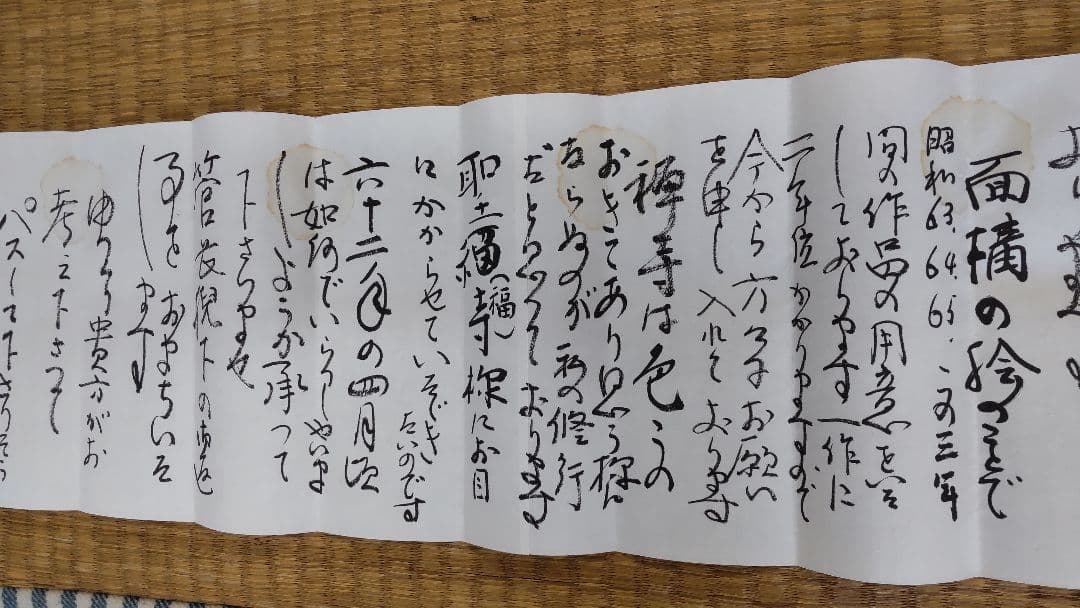 面構の絵のことで
昭和63.64.65.の三年
間の作品の用意をいそ
しております一作に
二年位かかりますので
今から方々にお願い
を申し入れております
禅寺は色々の
おきてあり思う様に
ならぬのが私の修行
だと思っております
聖福(福)寺様にお目
にかからせていただき
たいのです
六十二年の四月頃
は如何でいらっしゃいま
しょうか承って
下さいませ
管長猊下の御返
事をおまちいた
します
ゆっくり貴方がお
考え下さって
パスして下さい